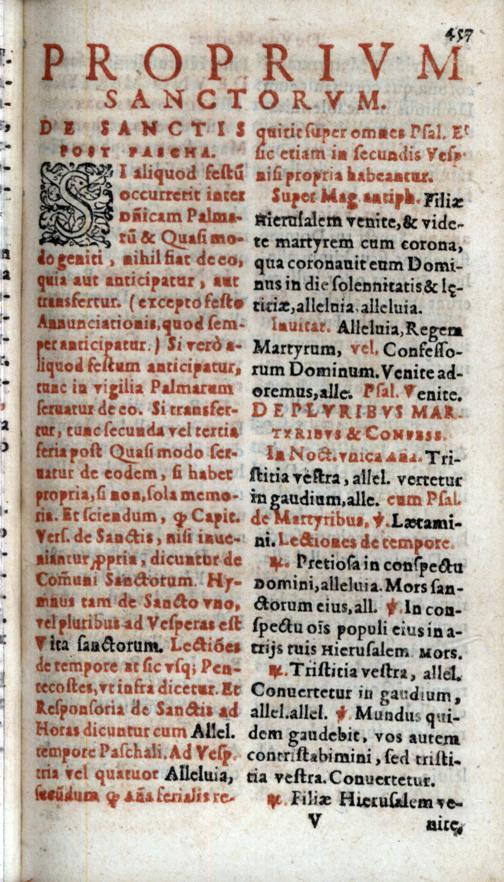 457
PROPRIVM
SANCTORVM.
DE SANCTIS
POST PASCHA.
SI aliquod festũ
occurrerit inter
dñicam Palma-
rũ & Quasi mo-
do geniti, nihil fiat de eo,
quia aut anticipatur, aut
transfertur. (excepto festo
Annunciationis, quod sem-
per anticipatur.) Si verò a-
liquod festum anticipatur,
tunc in vigilia Palmarum
seruatur de eo. Si transfer-
tur, tunc secunda vel tertia
feria post Quasi modo ser-
uatur de eodem, si habet
propria, si non, sola memo-
ria. Et sciendum, ꝙ Capit.
Vers. de Sanctis, nisi inue-
niantur ꝓpria, dicuntur de
Com̃uni Sanctorum. Hy-
mnus tam de Sancto vno,
vel pluribus ad Vesperas est
Vita sanctorum. Lectiões
de tempore at sic vsq; Pen-
tecostes, vt infra dicetur. Et
Responsoria de Sanctis ad
Horas dicuntur cum Allel.
tempore Paschali. Ad Vesp.
tria vel quatuor Alleluia,
secũdum ꝙ Aña ferialis re-
quirit super omnes Psal. Et
sic etiam in secundis Vesp.
nisi propria habeantur.
Super Mag. antiph. Filiæ
Hierusalem venite, & vide-
te martyrem cum corona,
qua coronauit eum Domi-
nus in die solennitatis & lę-
titiæ, alleluia, alleluia.
Inuitat. Alleluia, Regem
Martyrum, vel. Confesso-
rum Dominum. Venite ad-
oremus, alle. Psal. Venite.
DE PLVRIBVS MAR-
TYRIBVS & CONFESS.
In Noct. vnica Aña. Tri-
stitia vestra, allel. vertetur
in gaudium, alle. cum Psal.
de Martyribus, ℣. Lætami-
ni. Lectiones de tempore.
℟. Pretiosa in conspectu
Domini, alleluia. Mors san-
ctorum eius, all. ℣. In con-
spectu oĩs populi eius in a-
trijs tuis Hierusalem. Mors.
℟. Tristitia vestra, allel.
Conuertetur in gaudium,
allel. allel. ℣. Mundus qui-
dem gaudebit, vos autem
contristabimini, sed tristi-
tia vestra. Conuertetur.
℟. Filiæ Hierusalem ve-
V nite,